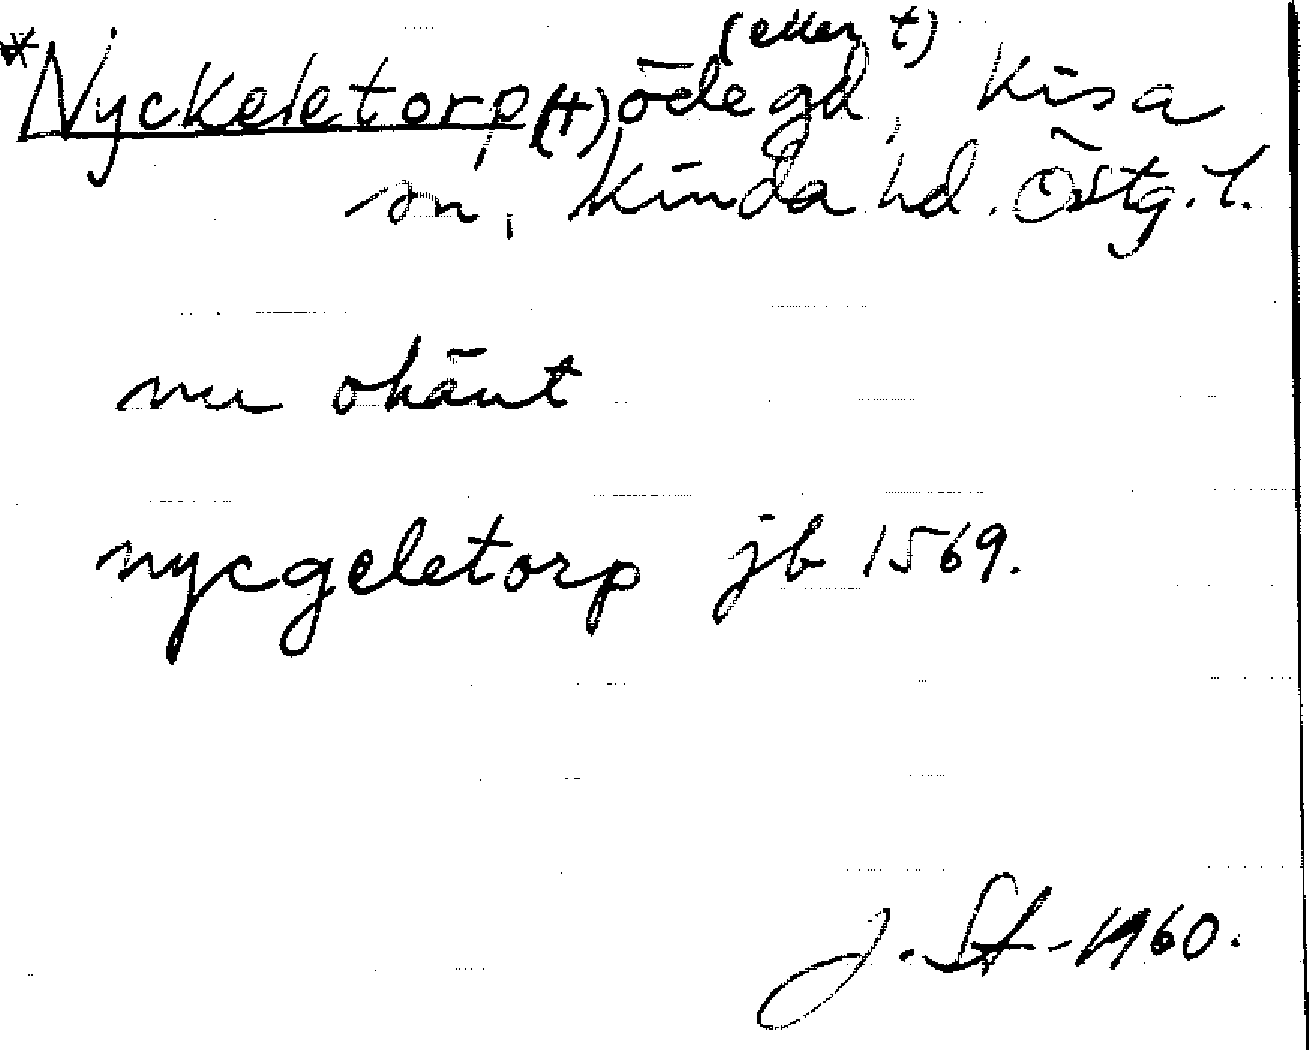 (eller t)
*Nyckeletorp, (†) ödegd, Kisa
sn, Kinda hd. Östg. l.
nu okänt
nycgeletorp jb 1569.
J. St-1960.